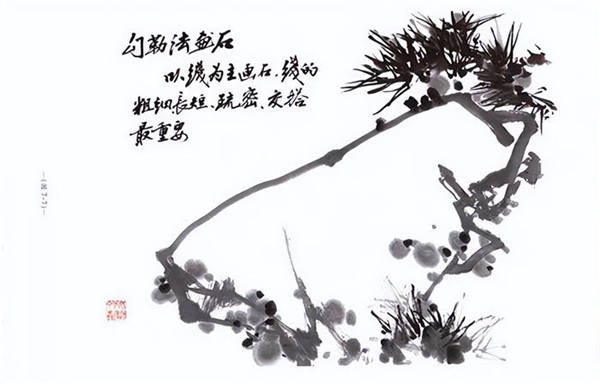 勾勒法画石
以线为主画石、线的
粗细长短、疏密、交搭
最重要
—(图7-7)—